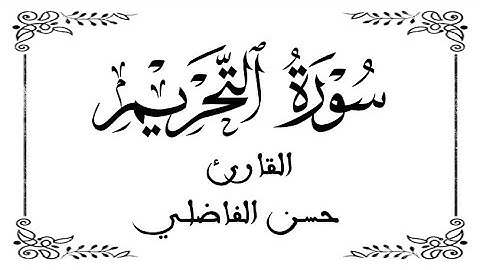 سُوْرَةُ ٱلتَّحْرِيْمِ
القارئ
حسن الفاضلي